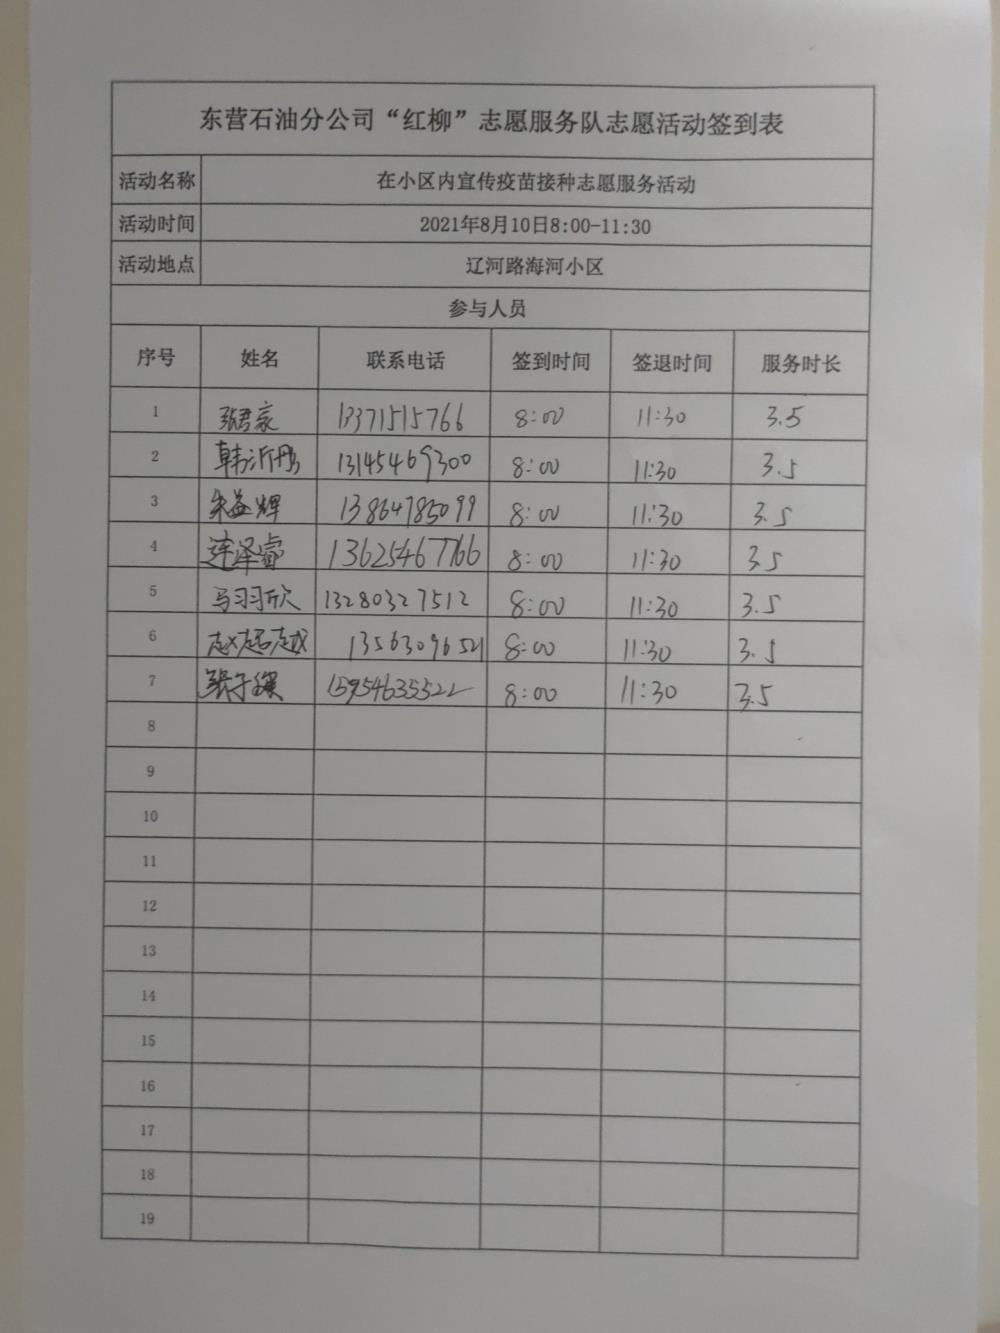 东营石油分公司“红柳”志愿服务队志愿活动签到表
活动名称 在小区内宣传疫苗接种志愿服务活动
活动时间 2021年8月10日8:00-11:30
活动地点 辽河路海河小区
参与人员
序号 姓名 联系电话 签到时间 签退时间 服务时长
1 张君家 13371515766 8:00 11:30 3.5
2 韩沂彤 13145469300 8:00 11:30 3.5
3 朱益辉 13864785099 8:00 11:30 3.5
4 连泽睿 13625467766 8:00 11:30 3.5
5 马羽欣 13280327512 8:00 11:30 3.5
6 赵超越 13563096521 8:00 11:30 3.5
7 张子 15954635522 8:00 11:30 3.5
8
9
10
11
12
13
14
15
16
17
18
19